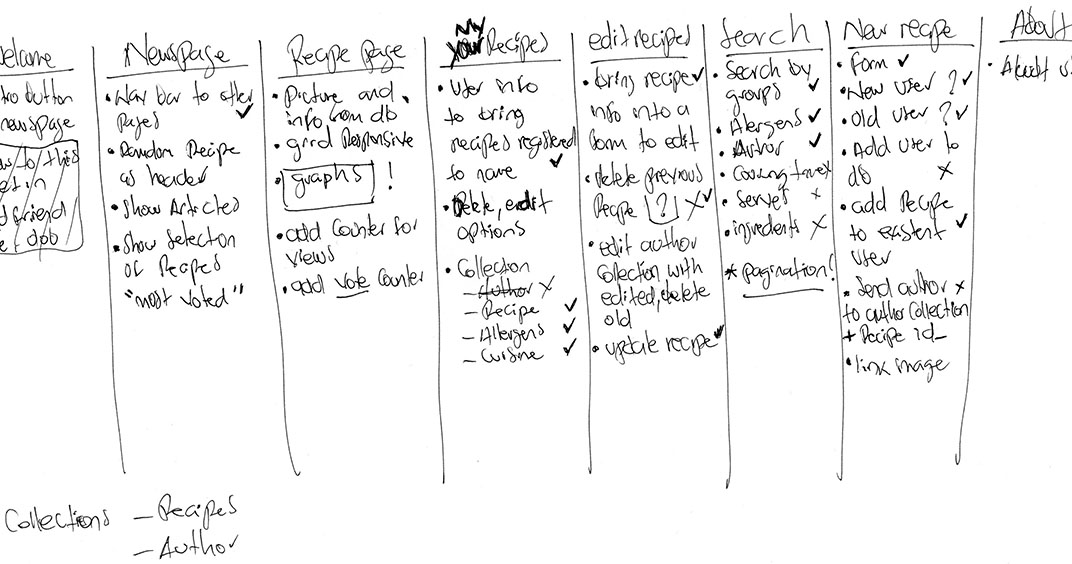 elcome
tro button
newspage
to this
friend
Newspage
• Nav bar to other
pages ✓
• Random Recipe
as header
• Show Articles
• Show Selection
of Recipes
"most voted"
Recipe page
• Picture and
info from db
• grid Responsive
• graphs !
• add counter for
views
• add Vote counter
My
your Recipes
• User info
to bring
recipes registered
to name ✓
• Delete, edit
options
• Collection
– Author X
– Recipe ✓
– Allergens ✓
– Cuisine ✓
edit recipes
• bring recipe ✓
info into a
form to edit
• delete previous
Recipe ? X ✓
• edit author
collection with
edited, delete
old
• update recipe ✓
Search
• Search by
groups ✓
• Alergens ✓
• Author ✓
• Cooking time X
• Serves X
• ingredients X
* pagination!
New recipe
• Form ✓
• New user ? ✓
• Old user ? ✓
• Add user to
db X
• add Recipe
to existent ✓
user
• Send author X
to author collection
+ Recipe id_
• link image
About
• About u
Collections – Recipes
– Author